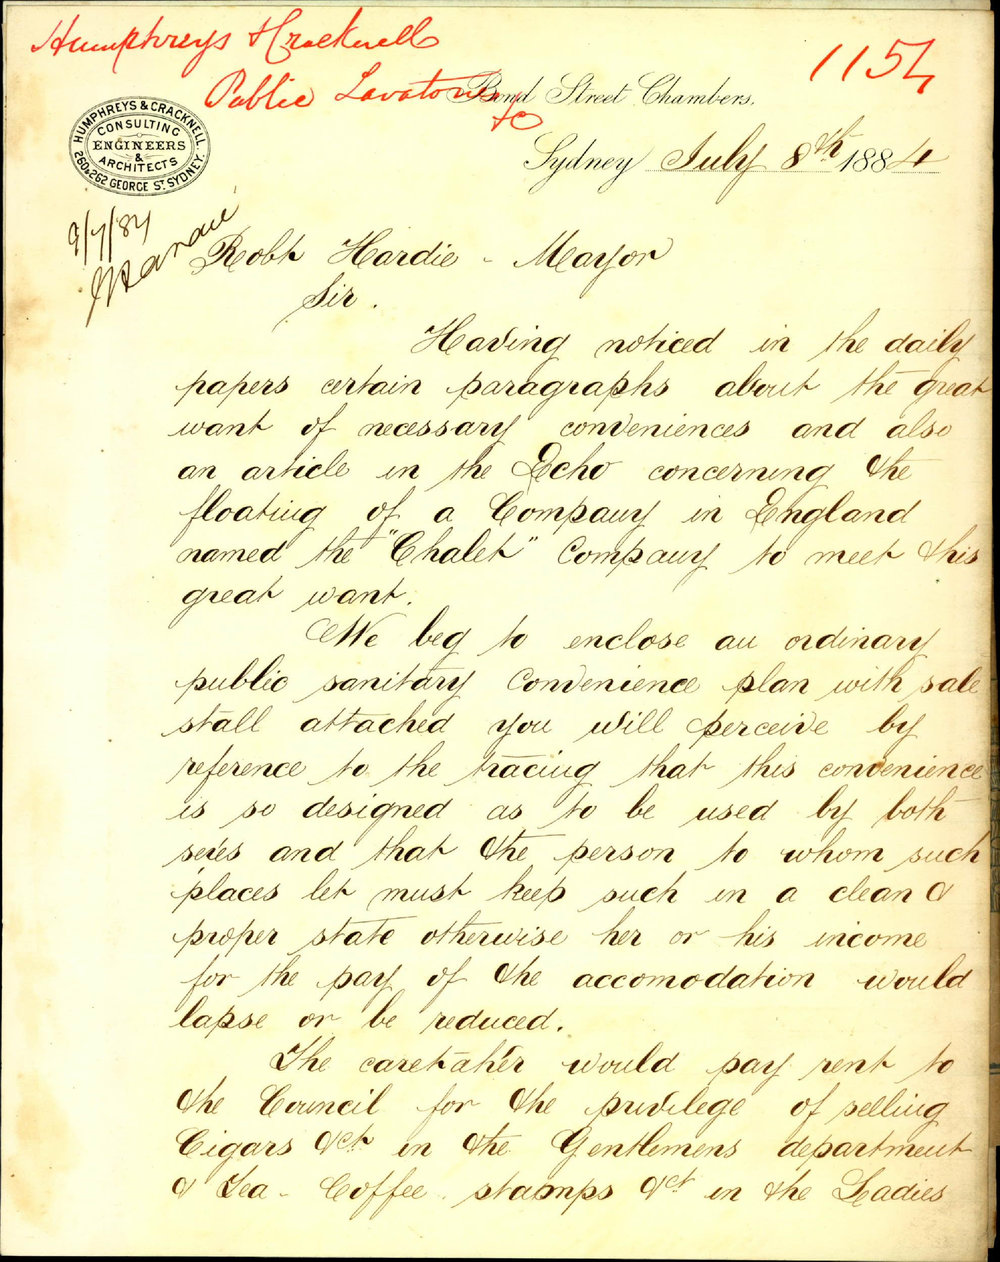 Humphreys & Cracknell
Public Lavatories
&c
1154
Bond Street Chambers.
HUMPHREYS & CRACKNELL.
CONSULTING
ENGINEERS
&
ARCHITECTS
260 & 262 GEORGE ST SYDNEY.
Sydney July 8th 1884
9/7/84
Robt Hardie - Mayor
Sir.
Having noticed in the daily
papers certain paragraphs about the great
want of necessary conveniences and also
an article in the Echo concerning the
floating of a Company in England
named the "Chalet" Company to meet this
great want.
We beg to enclose an ordinary
public sanitary convenience plan with sale
stall attached you will perceive by
reference to the tracing that this convenience
is so designed as to be used by both
sexes and that the person to whom such
places let must keep such in a clean &
proper state otherwise her or his income
for the pay of the accomodation would
lapse or be reduced.
The caretaker would pay rent to
the Council for the privilege of selling
Cigars &ct in the Gentlemens department
& Tea - Coffee. stamps &ct in the Ladies